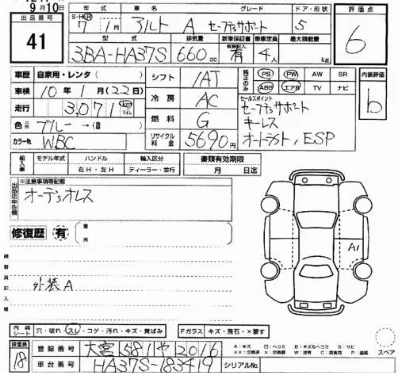 9月10日
出品番号 41
年式 7 1月
車名 アルト A
グレード セーフティサポート
ドア・形状 5
評価点 6
型式 3BA-HA37S
排気量 660 cc
新車保証書 有
乗車定員 4人
最大積載量
車歴 自家用・レンタ
シフト 1AT
PS PW AW SR
ABS エアB TV ナビ
内装評価 b
車検 10年1月(22日)
冷房 AC
走行 3,071 km
燃料 G
セールスポイント
セーフティサポート
キーレス
オートライト, ESP
色 ブルー→
リサイクル料金 5690円
カラーNo. WBC
輸入車 モデル年式 ハンドル 右H・左H 輸入区分 ディーラー・並行
書類有効期限 月 日迄
※注意事項等記載
オーディオレス
修復歴 有
A1
外装A
内装 シート 穴・破れ・スレ・コゲ・汚れ・キズ・黄ばみ
Fガラス キズ・飛石・×要す
スペア
検査員 18
登録番号 大宮 581 や 2016
車台番号 HA37S-183419
シリアルNo.